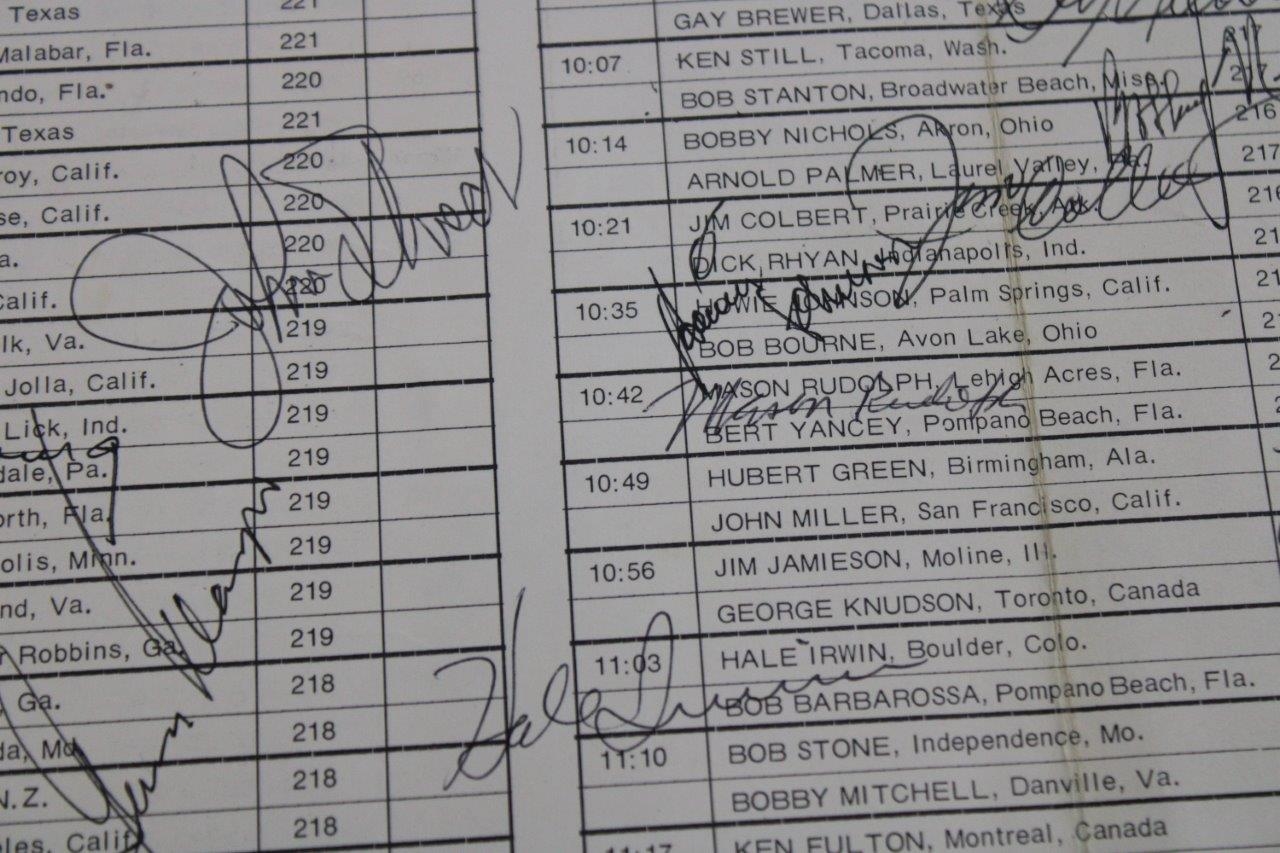 221
Texas
Malabar, Fla. 221
ndo, Fla. 220
Texas 221
roy, Calif. 220
se, Calif. 220
a. 220
Calif. 220
lk, Va. 219
Jolla, Calif. 219
Lick, Ind. 219
dale, Pa. 219
orth, Fla. 219
olis, Minn. 219
nd, Va. 219
r Robbins, Ga. 219
, Ga. 218
da, Md. 218
N.Z. 218
eles, Calif. 218
GAY BREWER, Dallas, Texas
10:07 KEN STILL, Tacoma, Wash. 217
BOB STANTON, Broadwater Beach, Miss. 217
10:14 BOBBY NICHOLS, Akron, Ohio 216
ARNOLD PALMER, Laurel Valley, Pa. 217
10:21 JIM COLBERT, Prairie Creek, Ark. 216
DICK RHYAN, Indianapolis, Ind. 21
10:35 HOWIE JOHNSON, Palm Springs, Calif. 21
BOB BOURNE, Avon Lake, Ohio 21
10:42 MASON RUDOLPH, Lehigh Acres, Fla. 2
Mason Rudolph
BERT YANCEY, Pompano Beach, Fla. 2
10:49 HUBERT GREEN, Birmingham, Ala.
JOHN MILLER, San Francisco, Calif.
10:56 JIM JAMIESON, Moline, Ill.
GEORGE KNUDSON, Toronto, Canada
11:03 HALE IRWIN, Boulder, Colo.
Hale Irwin
BOB BARBAROSSA, Pompano Beach, Fla.
11:10 BOB STONE, Independence, Mo.
BOBBY MITCHELL, Danville, Va.
11:17 KEN FULTON, Montreal, Canada